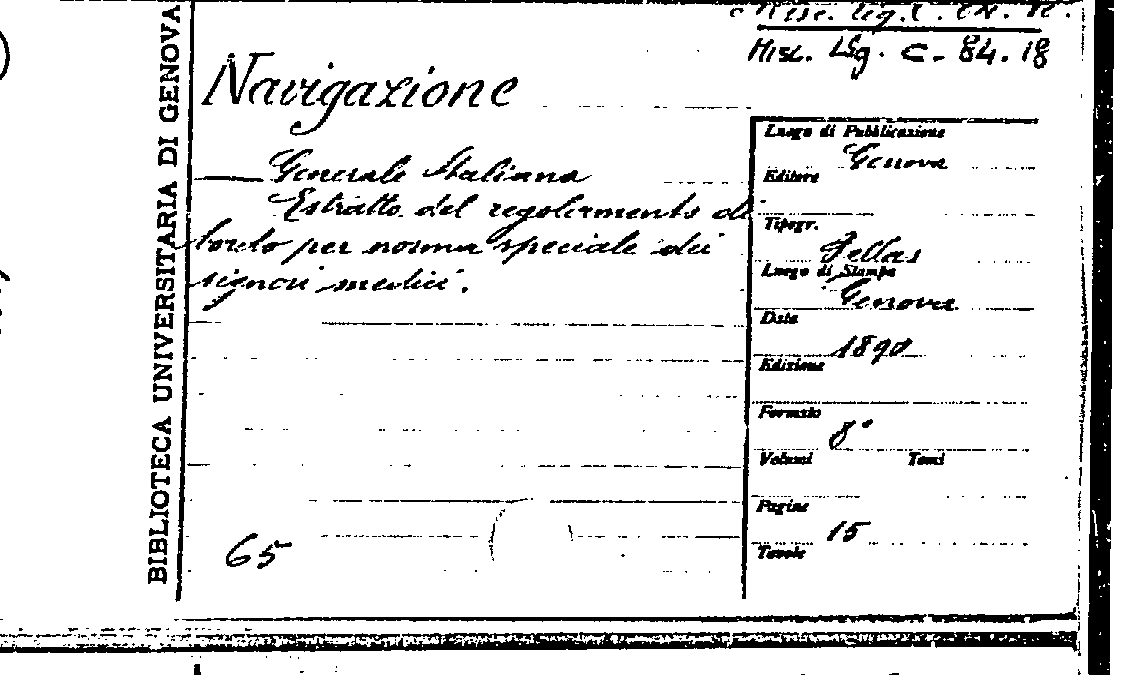 BIBLIOTECA UNIVERSITARIA DI GENOVA
Misc. Lig. C. 84. 18
Navigazione
Generale Italiana
Estratto del regolamento di
bordo per norma speciale dei
signori medici.
65
Luogo di Pubblicazione
Genova
Editore
Tipogr.
Fellas
Luogo di Stampa
Genova
Data
1890
Edizione
Formato
8°
Volumi Tomi
Pagine
15
Tavole